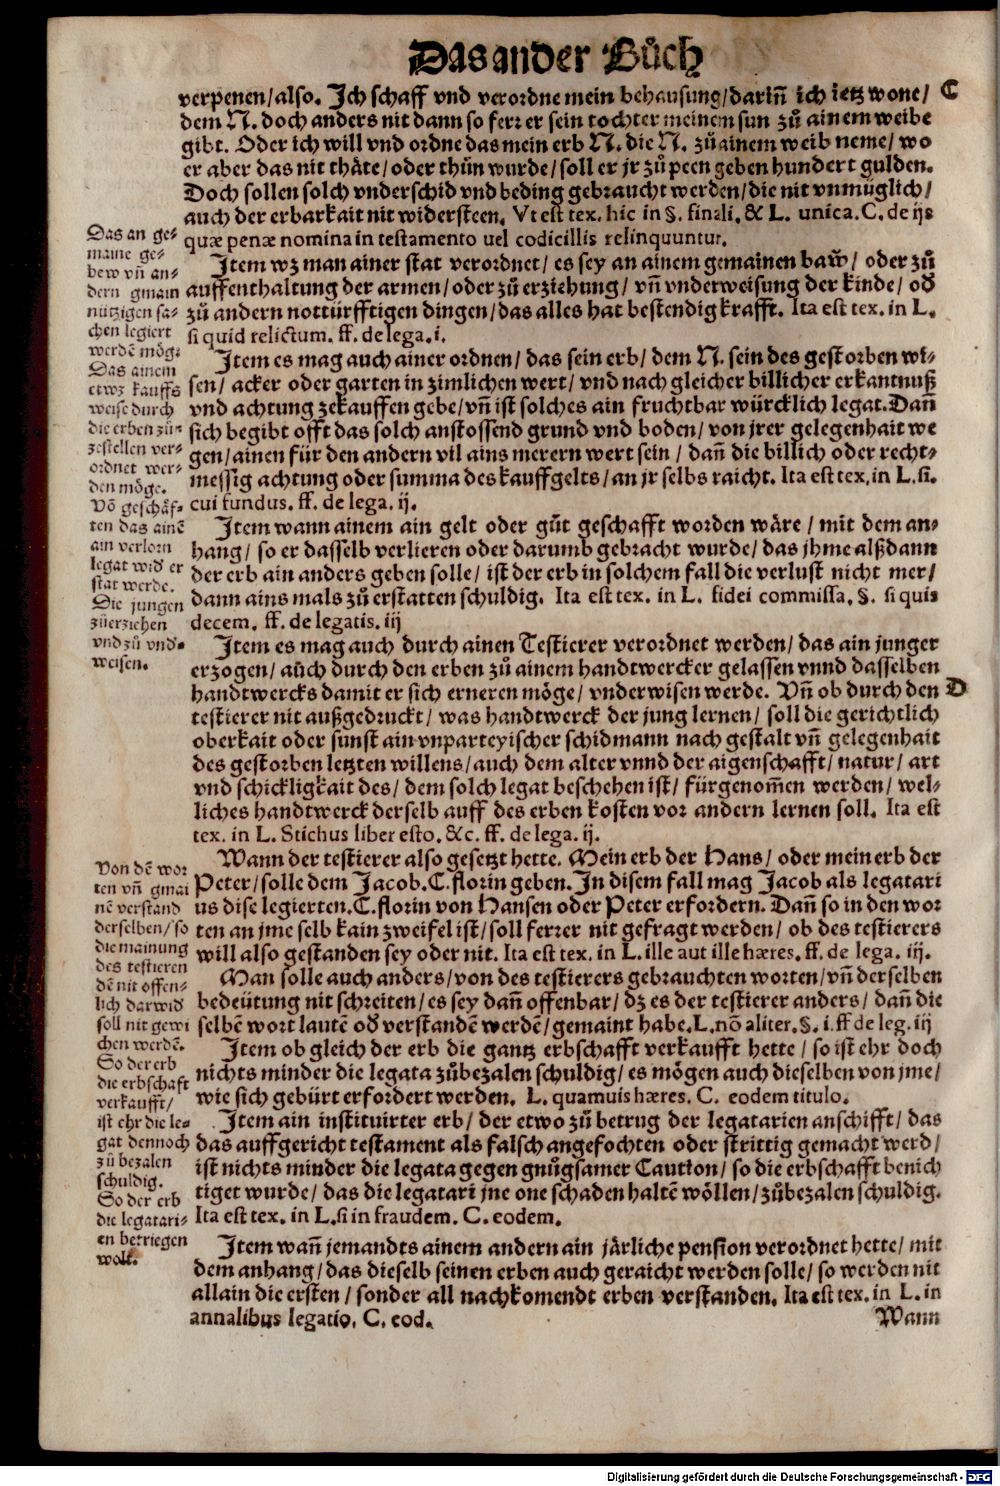 Das ander Bůch
verpenen/also. Ich schaff vnd verordne mein behausung/darin̄ ich ietz wone/ C
dem N. doch anders nit dann so ferr er sein tochter meinem sun zů ainem weibe
gibt. Oder ich will vnd ordne das mein erb N. die N. zů ainem weib neme/ wo
er aber das nit thäte/oder thůn wurde/ soll er jr zů peen geben hundert gulden.
Doch sollen solch vnderschid vnd beding gebraucht werden/die nit vnmüglich/
auch der erbarkait nit widersteen. Vt est tex. hic in §. finali. & L. unica. C. de ijs
quæ penæ nomina in testamento uel codicillis relinquuntur.
Item wz man ainer stat verordnet/ es sey an ainem gemainen baw̃/ oder zů
auffenthaltung der armen/oder zů erziehung/ vn̄ vnderweisung der kinde/ od̕
zů andern nottürfftigen dingen/das alles hat bestendig krafft. Ita est tex. in L.
si quid relictum. ff. de lega. i.
Item es mag auch ainer ordnen/ das sein erb/ dem N. sein des gestorben wi-
sen/ acker oder garten in zimlichen wert/ vnd nach gleicher billicher erkantnuß
vnd achtung zekauffen gebe/vn̄ ist solches ain fruchtbar würcklich legat. Dan̄
sich begibt offt das solch anstossend grund vnd boden/ von jrer gelegenhait we
gen/ainen für den andern vil ains merern wert sein/ dan̄ die billich oder recht-
messig achtung oder summa des kauffgelts/an jr selbs raicht. Ita est tex. in L. si.
cui fundus. ff. de lega. ij.
Item wann ainem ain gelt oder gůt geschafft worden wäre/ mit dem an-
hang/ so er dasselb verlieren oder darumb gebracht wurde/das jhme alßdann
der erb ain anders geben solle/ ist der erb in solchem fall die verlust nicht mer/
dann ains mals zů erstatten schuldig. Ita est tex. in L. fidei commissa. §. si quis
decem. ff. de legatis. iij
Item es mag auch durch ainen Testierer verordnet werden/das ain junger
erzogen/ aůch durch den erben zů ainem handtwercker gelassen vnnd dasselben
handtwercks damit er sich erneren möge/ vnderwisen werde. Vn̄ ob durch den D
testierer nit außgedruckt/ was handtwerck der jung lernen/ soll die gerichtlich
oberkait oder sunst ain vnparteyischer schidmann nach gestalt vn̄ gelegenhait
des gestorben letzten willens/auch dem alter vnnd der aigenschafft/natur/ art
vnd schickligkait des/ dem solch legat beschehen ist/ fürgenom̄en werden/ wel-
liches handtwerck derselb auff des erben kosten vor andern lernen soll. Ita est
tex. in L. Stichus liber esto. &c. ff. de lega. ij.
Wann der testierer also gesetzt hette. Mein erb der Hans/ oder mein erb der
Peter/solle dem Jacob. C. florin geben. In disem fall mag Jacob als legatari
us dise legierten. C. florin von Hansen oder Peter erfordern. Dan̄ so in den wor
ten an jme selb kain zweifel ist/ soll ferrer nit gefragt werden/ ob des testierers
will also gestanden sey oder nit. Ita est tex. in L. ille aut ille hæres. ff. de lega. iij.
Man solle auch anders/von des testierers gebrauchten worten/vn̄ derselben
bedeütung nit schreiten/es sey dan̄ offenbar/ dz es der testierer anders/ dan̄ die
selbē wort lautē od̕ verstandē werdē/gemaint habe. L. nō aliter. §. i. ff de leg. iij
Item ob gleich der erb die gantz erbschafft verkaufft hette/ so ist ehr doch
nichts minder die legata zůbezalen schuldig/es mögen auch dieselben von jme/
wie sich gebürt erfordert werden. L. quamuis hæres. C. eodem titulo.
Item ain instituirter erb/ der etwo zů betrug der legatarien anschifft/das
das auffgericht testament als falsch angefochten oder strittig gemacht werd/
ist nichts minder die legata gegen gnůgsamer Caution/ so die erbschafft benich
tiget wurde/ das die legatari jne one schaden haltē wöllen/zůbezalen schuldig.
Ita est tex. in L. si in fraudem. C. eodem.
Item wan̄ jemandts ainem andern ain järliche pension verordnet hette/ mit
dem anhang/das dieselb seinen erben auch geraicht werden solle/so werden nit
allain die ersten/ sonder all nachkomendt erben verstanden. Ita est tex. in L. in
annalibus legatio. C. eod.
Wann
Das an ge-
maine ge-
bew vn̄ an-
dern gmain
nützigen sa-
chen legiert
werdē mög.
Das ainem
etwz kauffs
weise durch
die erben zů-
zestellen ver-
ordnet wer-
den möge.
Vō geschäf-
ten das ainē
ain verlorn
legat wid̕ er
stat werde.
Die jungen
zůerziehen
vnd zů vnd̕-
weisen.
Von dē wor
ten vn̄ gmai
nē verstand
derselben/so
die mainung
des testieren
dē nit offen-
lich darwid̕
soll nit gewi
chen werdē.
So der erb
die erbschaft
verkaufft/
ist ehr die le-
gat dennoch
zů bezalen
schuldig.
So der erb
die legatari-
en betriegen
wolt.
Digitalisierung gefördert durch die Deutsche Forschungsgemeinschaft - DFG